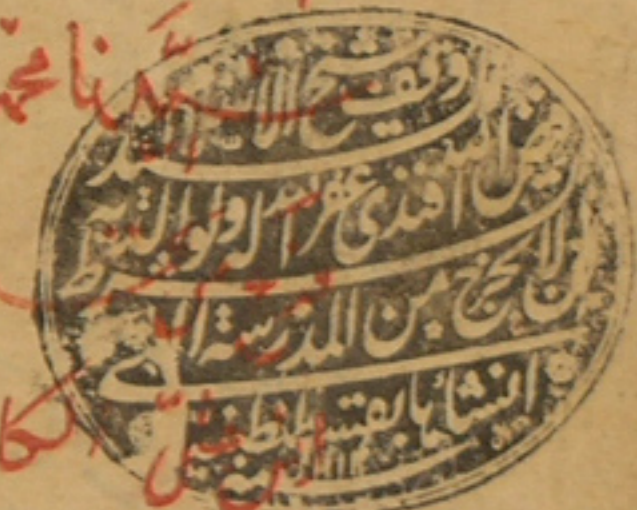 سيدنا محمد
وقف شيخ الاسلام السيد
فيض الله افندى غفر الله له ولوالديه
بشرط ان لا يخرج من المدرسة التى
انشاها بقسطنطينية